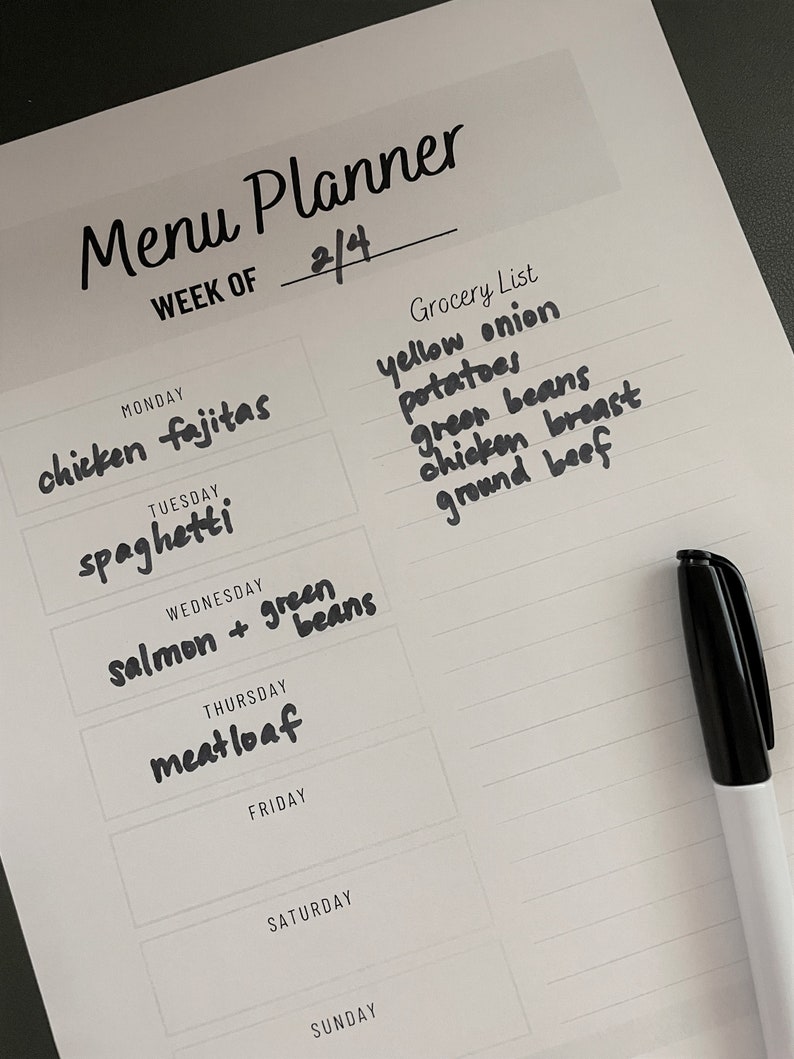 Menu Planner
WEEK OF 2/4
MONDAY
chicken fajitas
TUESDAY
spaghetti
WEDNESDAY
salmon + green
beans
THURSDAY
meatloaf
FRIDAY
SATURDAY
SUNDAY
Grocery List
yellow onion
potatoes
green beans
chicken breast
ground beef